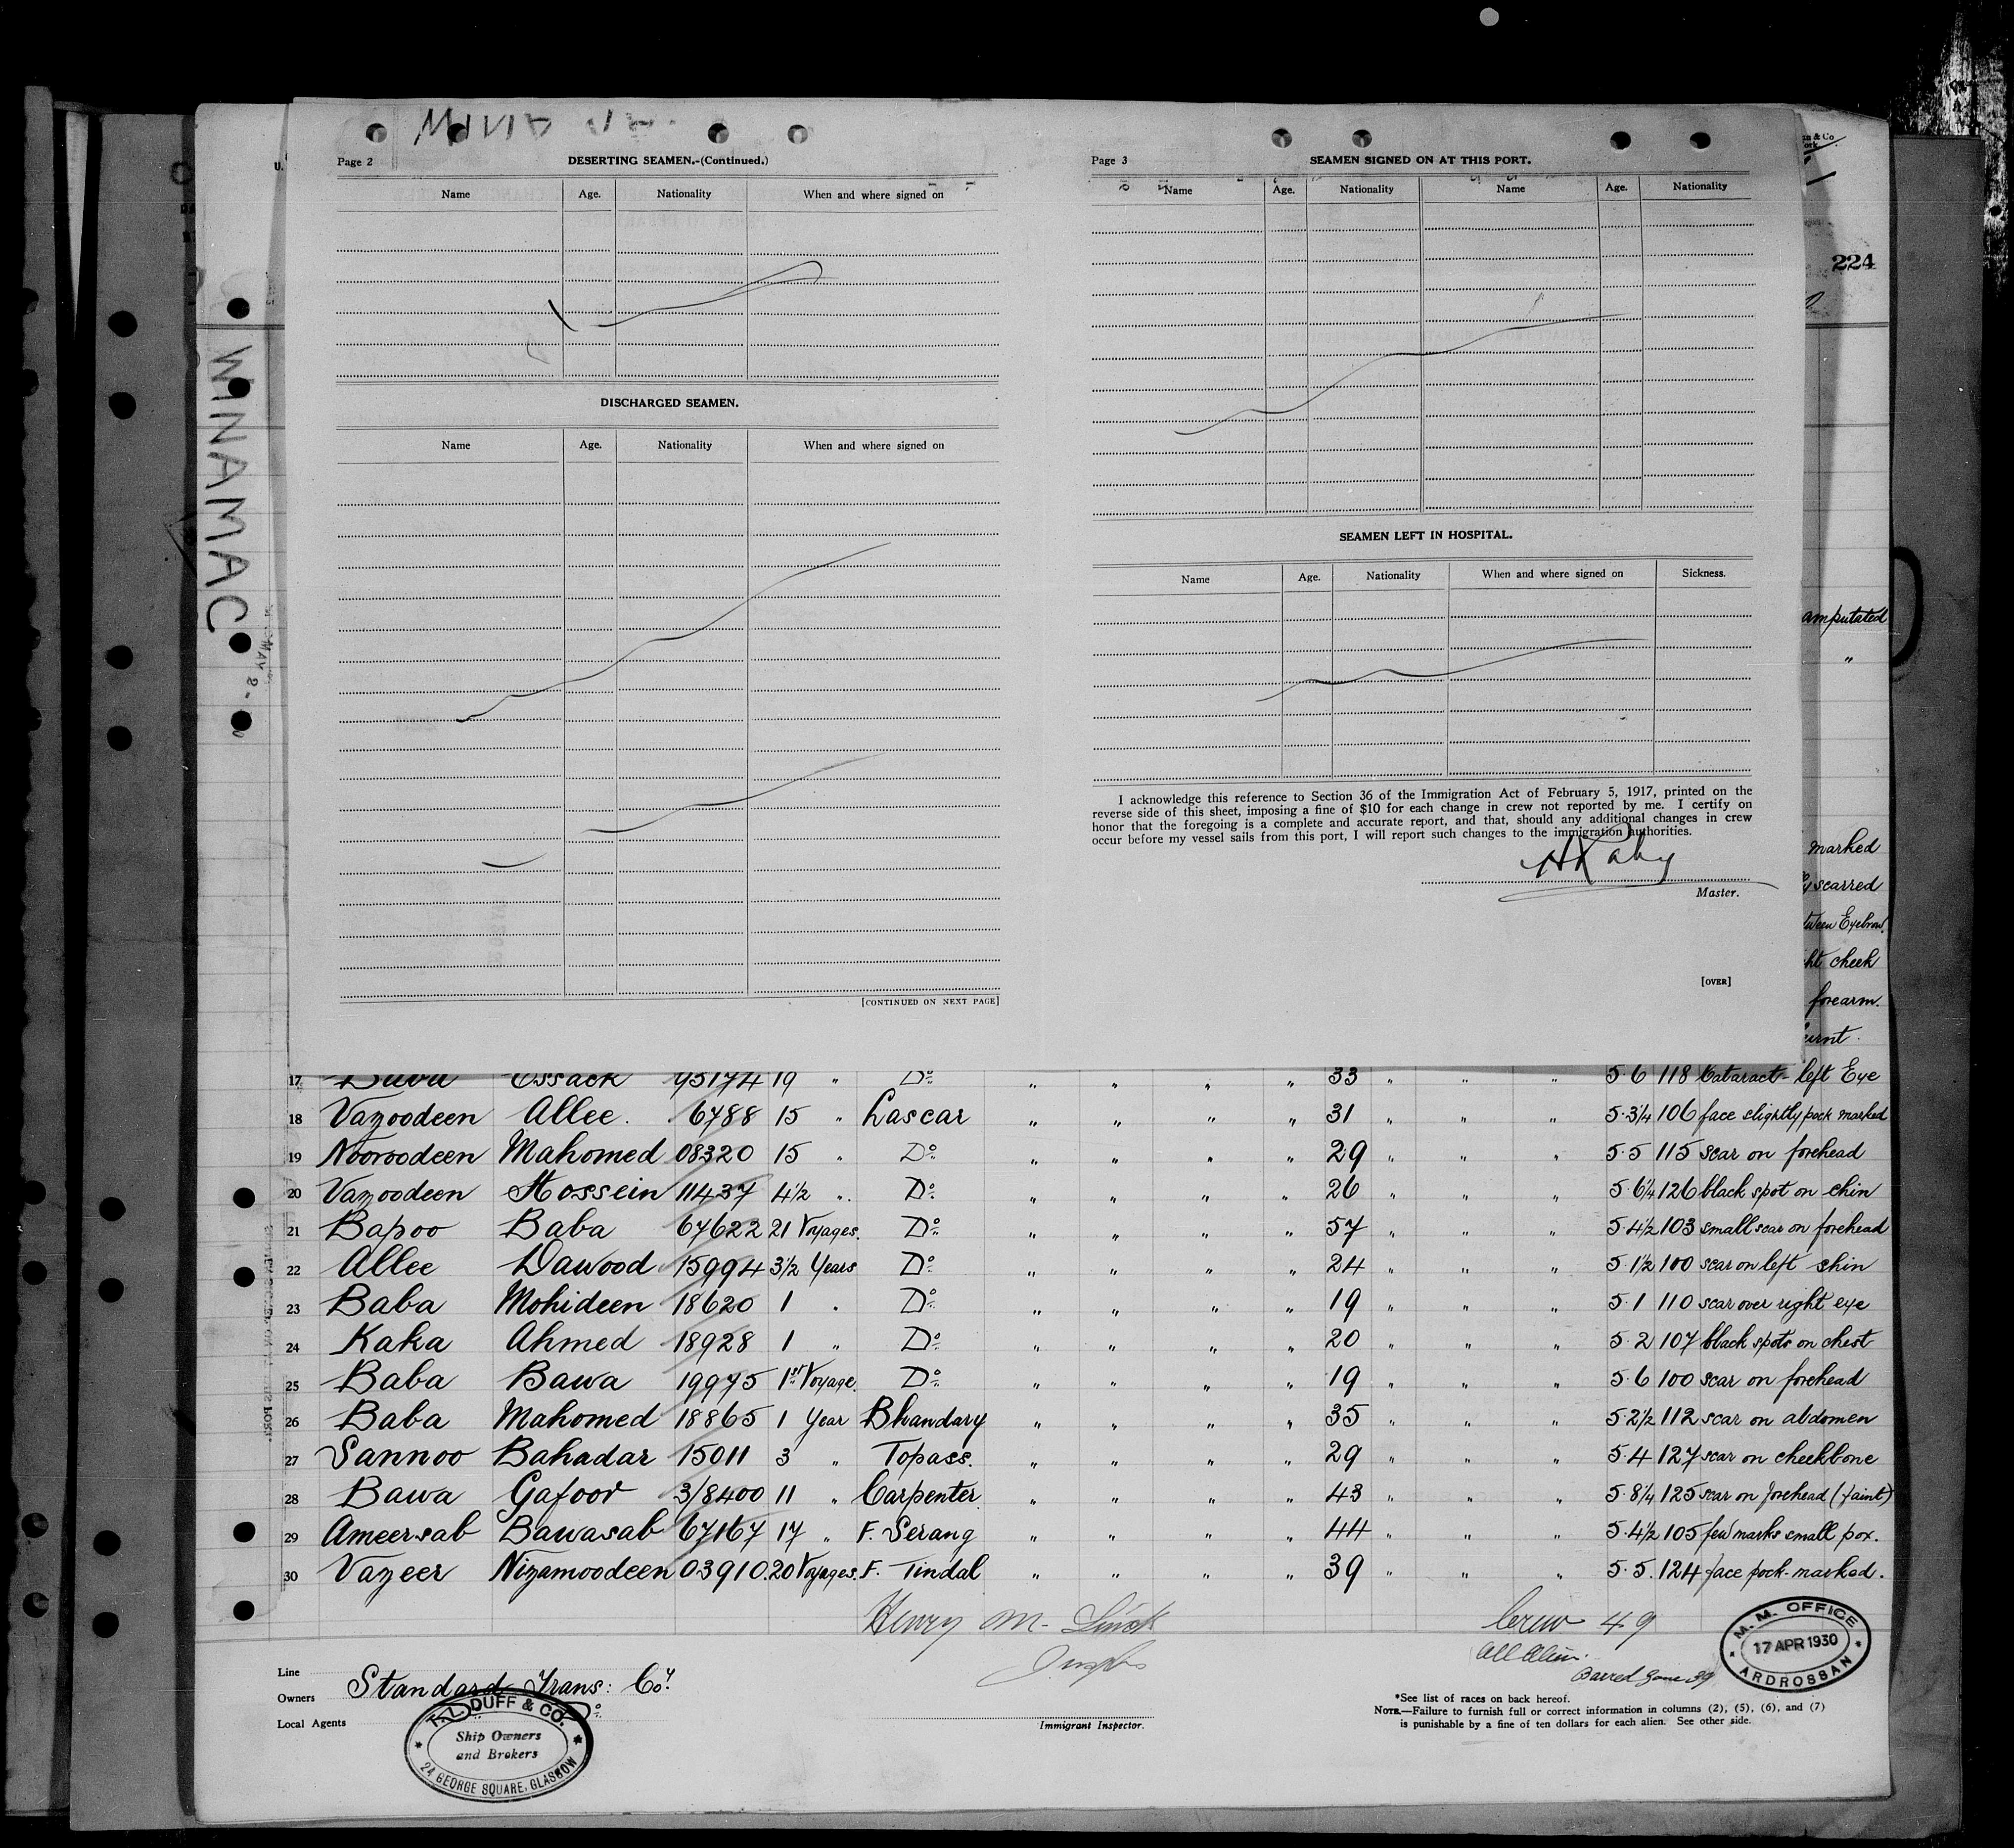 WINAMAC
MAY 2 -
224
Page 2 DESERTING SEAMEN.-(Continued.)
Name Age. Nationality When and where signed on
DISCHARGED SEAMEN.
Name Age. Nationality When and where signed on
[CONTINUED ON NEXT PAGE]
Page 3 SEAMEN SIGNED ON AT THIS PORT.
Name Age. Nationality Name Age. Nationality
SEAMEN LEFT IN HOSPITAL.
Name Age. Nationality When and where signed on Sickness.
I acknowledge this reference to Section 36 of the Immigration Act of February 5, 1917, printed on the
reverse side of this sheet, imposing a fine of $10 for each change in crew not reported by me. I certify on
honor that the foregoing is a complete and accurate report, and that, should any additional changes in crew
occur before my vessel sails from this port, I will report such changes to the immigration authorities.
Master.
[OVER]
amputated
"
marked
scarred
Eyebrow.
cheek
forearm.
17 Ossack 95174 19 " Do 33 " " " 5.6 118 Cataract - left Eye
18 Vazoodeen Allee. 6788 15 " Lascar " " " " 31 " " " 5.3¼ 106 face slightly pock marked
19 Nooroodeen Mahomed 08320 15 " Do " " " " 29 " " " 5.5 115 scar on forehead
20 Vazoodeen Hossein 11437 4½ " Do " " " " 26 " " " 5.6¼ 126 black spot on chin
21 Bapoo Baba 67622 21 Voyages. Do " " " " 57 " " " 5.4½ 103 small scar on forehead
22 Allee Dawood 15994 3½ Years Do " " " " 24 " " " 5.1½ 100 scar on left shin
23 Baba Mohideen 18620 1 " Do " " " " 19 " " " 5.1 110 scar over right eye
24 Kaka Ahmed 18928 1 " Do " " " " 20 " " " 5.2 107 black spots on chest
25 Baba Bawa 19975 1st Voyage. Do " " " " 19 " " " 5.6 100 scar on forehead
26 Baba Mahomed 18865 1 Year Bhandary " " " " 35 " " " 5.2½ 112 scar on abdomen
27 Sannoo Bahadar 15011 3 " Topass. " " " " 29 " " " 5.4 127 scar on cheekbone
28 Bawa Gafoor 3/8400 11 " Carpenter " " " " 43 " " " 5.8¼ 125 scar on forehead (faint)
29 Ameersab Bawasab 67167 17 " F. Serang " " " " 44 " " " 5.4½ 105 few marks small pox.
30 Vazeer Nizamoodeen 03910. 20 Voyages. F. Tindal " " " " 39 " " " 5.5. 124 face pock-marked.
Henry M.
Crew 49
All Alien.
Barred Zone 39
M. M. OFFICE
17 APR 1930
ARDROSSAN
Line
Owners Standard Trans: Coy.
Local Agents Do
T. L. DUFF & CO.
Ship Owners
and Brokers
24 GEORGE SQUARE, GLASGOW
Immigrant Inspector.
*See list of races on back hereof.
NOTE.—Failure to furnish full or correct information in columns (2), (5), (6), and (7)
is punishable by a fine of ten dollars for each alien. See other side.